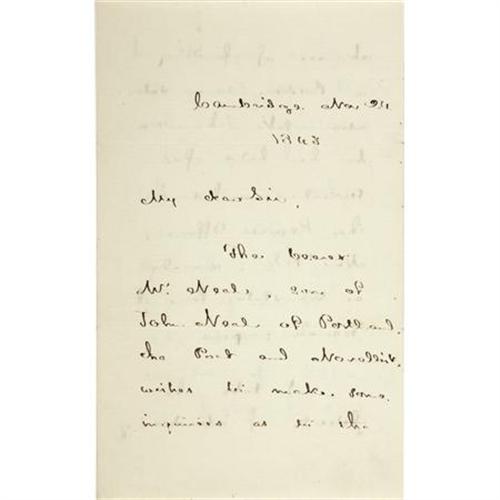 Cambridge. Nov 24
18
My dear Sir,
The bearer
Mr. Neal, son of
John Neal of Portland,
the Poet and Novelist,
wishes to make some
inquiries as to the